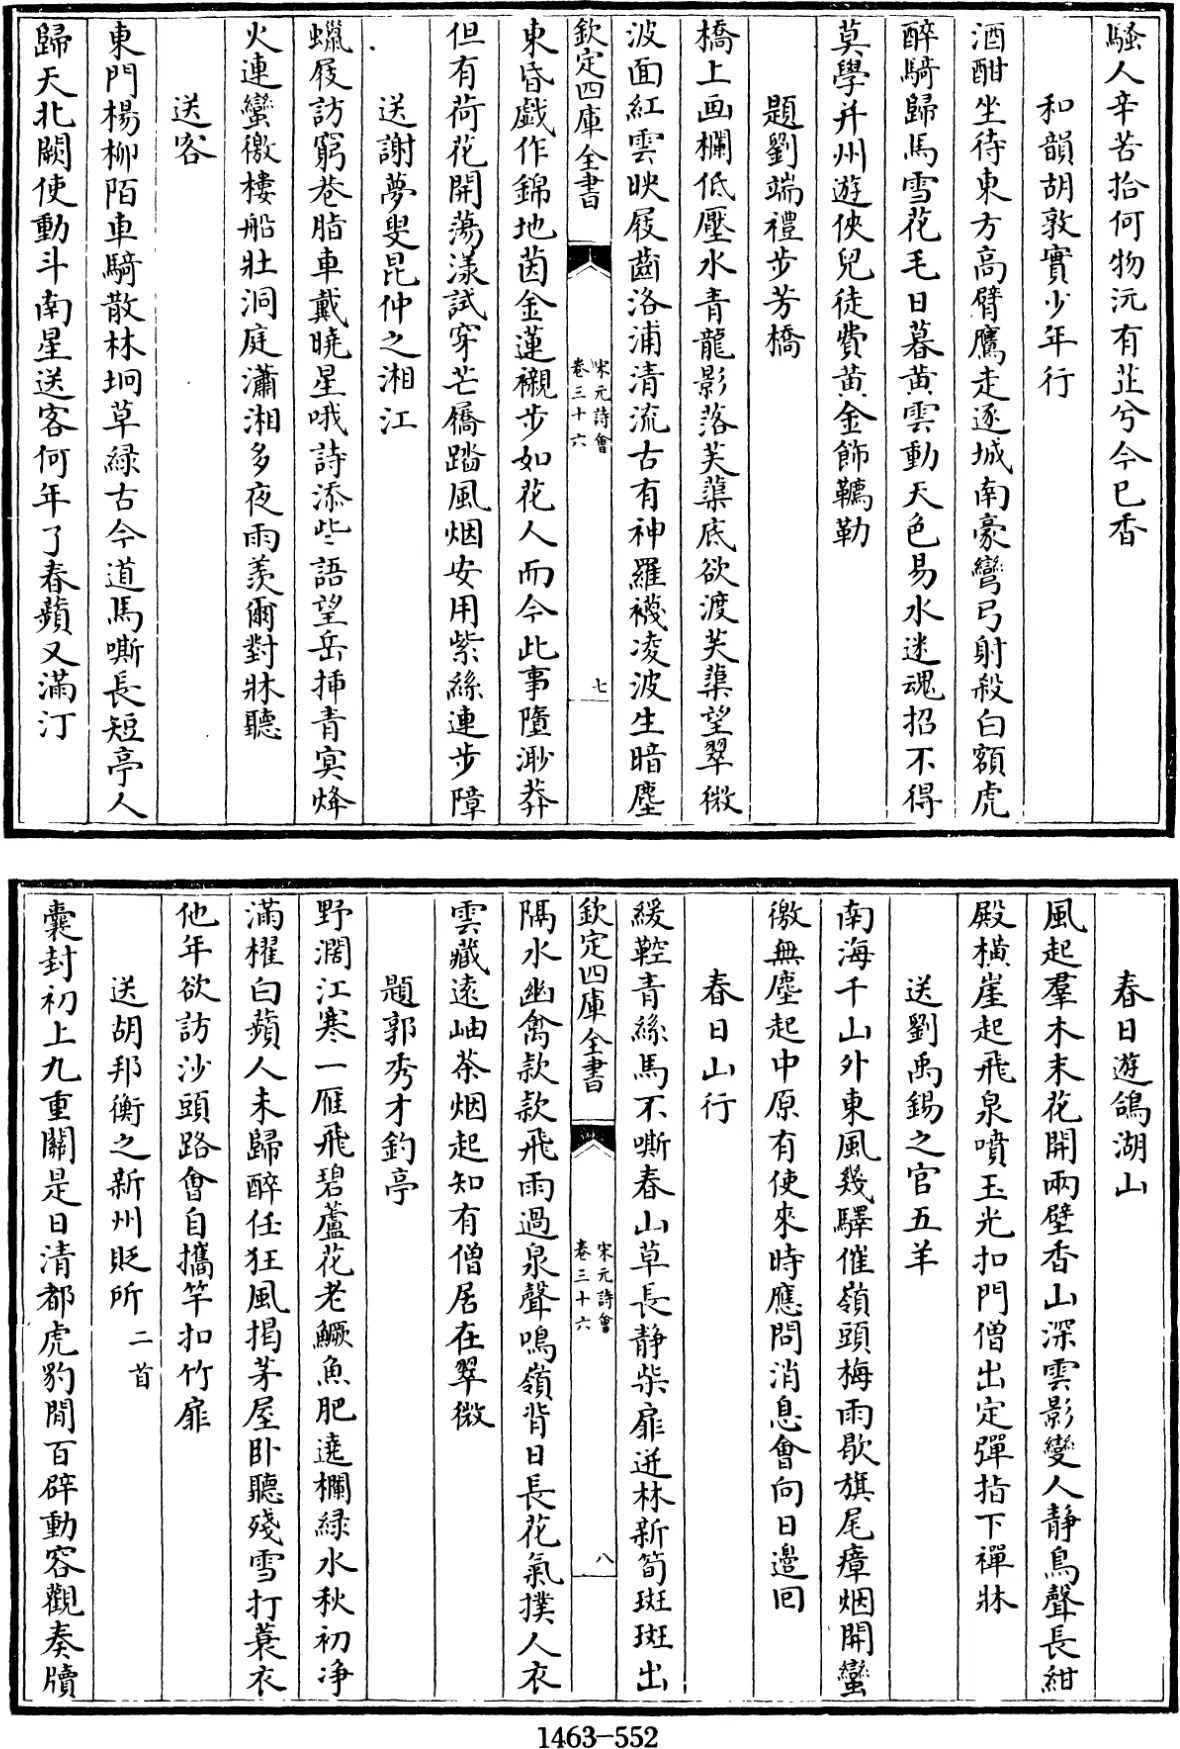 騷人辛苦拾何物沅有芷兮今已香
和韻胡敦實少年行
酒酣坐待東方高臂鷹走逐城南豪彎弓射殺白額虎
醉騎歸馬雪花毛日暮黃雲動天色易水迷魂招不得
莫學并州遊俠兒徒費黃金飾韉勒
題劉端禮步芳橋
橋上画欄低壓水青龍影落芙蕖底欲渡芙蕖望翠微
波面紅雲映屐齒洛浦清流古有神羅襪凌波生暗塵
欽定四庫全書
宋元詩會
卷三十六
七
東昏戲作錦地茵金蓮襯步如花人而今此事墮渺莽
但有荷花開蕩漾試穿芒屩踏風烟安用紫絲連步障
送謝夢叟昆仲之湘江
蠟屐訪窮巷脂車戴曉星哦詩添些語望岳揷青㝠烽
火連蠻徼樓船壯洞庭瀟湘多夜雨羨爾對牀聽
送客
東門楊柳陌車騎散林坰草綠古今道馬嘶長短亭人
歸天北闕使動斗南星送客何年了春蘋又滿汀
春日遊鴿湖山
風起羣木末花開兩壁香山深雲影變人靜鳥聲長紺
殿橫崖起飛泉噴玉光扣門僧出定彈指下禪牀
送劉禹錫之官五羊
南海千山外東風幾驛催嶺頭梅雨歇旗尾瘴烟開蠻
徼無塵起中原有使來時應問消息會向日邉回
春日山行
緩鞚青絲馬不嘶春山草長靜柴扉迸林新筍斑斑出
欽定四庫全書
宋元詩會
卷三十六
八
隔水幽禽款款飛雨過泉聲鳴嶺背日長花氣撲人衣
雲藏遠岫茶烟起知有僧居在翠微
題郭秀才釣亭
野濶江寒一雁飛碧蘆花老鱖魚肥遶欄綠水秋初淨
滿櫂白蘋人未歸醉任狂風揭茅屋卧聽殘雪打蓑衣
他年欲訪沙頭路會自攜竿扣竹扉
送胡邦衡之新州貶所 二首
囊封初上九重關是日清都虎豹閒百辟動容觀奏牘
1463-552